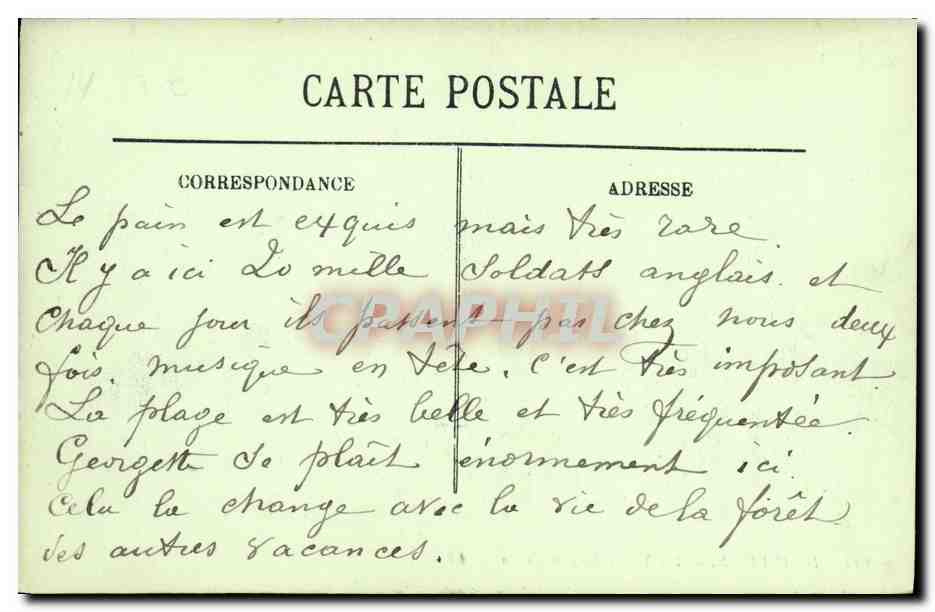 CARTE POSTALE
CORRESPONDANCE
ADRESSE
Le pain est exquis mais très rare.
Il y a ici 20 mille soldats anglais et
chaque jour ils passent pas chez nous deux
fois, musique en tête. C'est très imposant.
La plage est très belle et très fréquentée.
Georgette se plaît énormément ici.
Cela la change avec la vie de la forêt
des autres vacances.
CPAPHIL